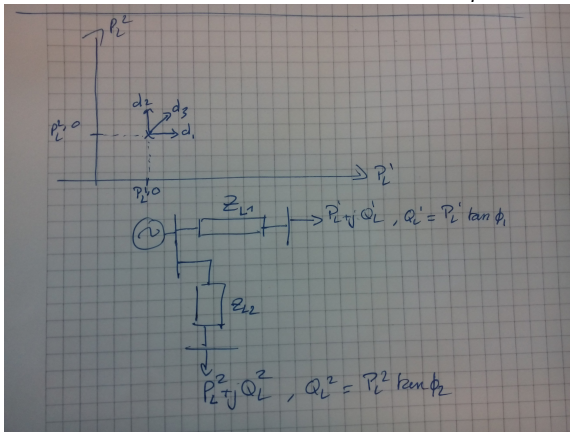 P_L^2
d2
d3
P_L^{2,0}
d1
P_L^{1,0}
P_L^1
Z_{L1}
P_L^1+jQ_L^1, Q_L^1 = P_L^1 tan ϕ_1
Z_{L2}
P_L^2+jQ_L^2, Q_L^2 = P_L^2 tan ϕ_2